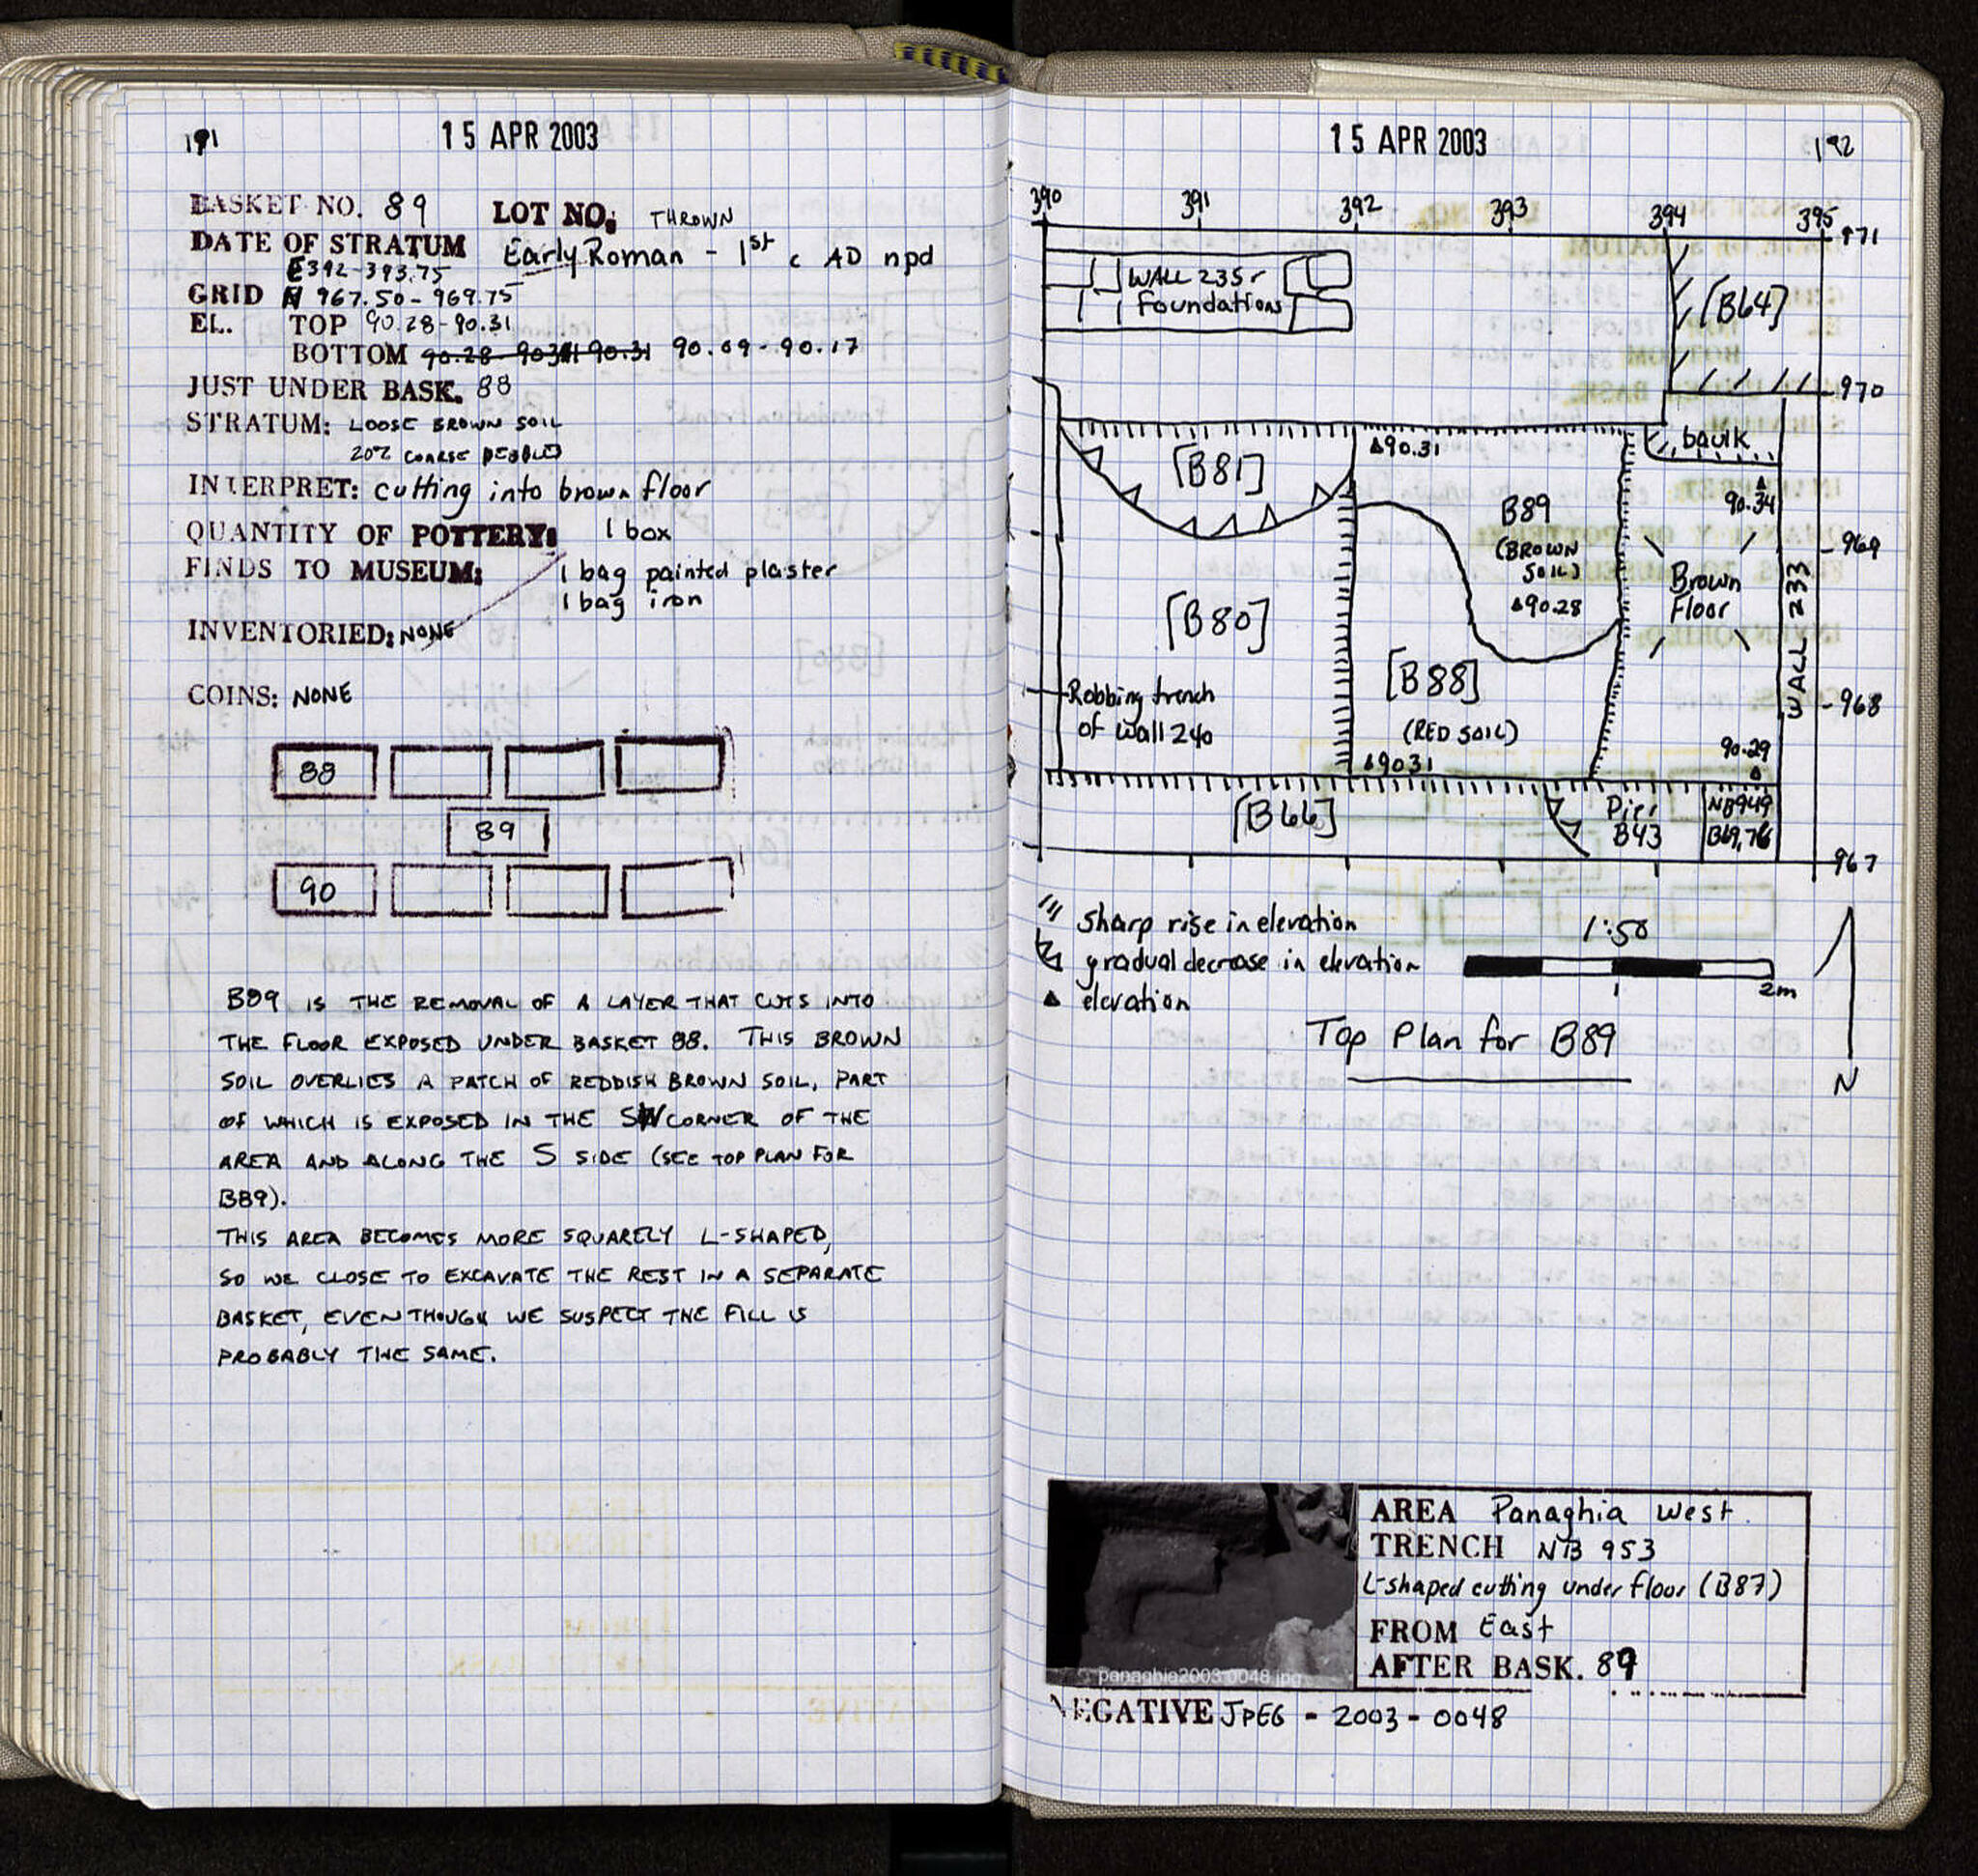 191
15 APR 2003
BASKET NO. 89 LOT NO. THROWN
DATE OF STRATUM Early Roman - 1st c AD npd
E392-393.75
GRID N 967.50-969.75
EL. TOP 90.28-90.31
BOTTOM 90.28-90.31 90.31 90.09-90.17
JUST UNDER BASK. 88
STRATUM: LOOSE BROWN SOIL
20% COARSE PEBBLES
INTERPRET: cutting into brown floor
QUANTITY OF POTTERY: 1 box
FINDS TO MUSEUM: 1 bag painted plaster
1 bag iron
INVENTORIED: NONE
COINS: NONE
88
89
90
B89 IS THE REMOVAL OF A LAYER THAT CUTS INTO
THE FLOOR EXPOSED UNDER BASKET 88. THIS BROWN
SOIL OVERLIES A PATCH OF REDDISH BROWN SOIL, PART
OF WHICH IS EXPOSED IN THE SW CORNER OF THE
AREA AND ALONG THE S SIDE (SEE TOP PLAN FOR
B89).
THIS AREA BECOMES MORE SQUARELY L-SHAPED,
SO WE CLOSE TO EXCAVATE THE REST IN A SEPARATE
BASKET, EVEN THOUGH WE SUSPECT THE FILL IS
PROBABLY THE SAME.
15 APR 2003
192
390 391 392 393 394 395
971
WALL 235
Foundations
[B64]
970
baulk
[B81]
90.31
90.34
B89
(BROWN
SOIL)
90.28
969
Brown
Floor
WALL 233
[B80]
[B88]
(RED SOIL)
Robbing trench
of Wall 240
968
90.29
90.31
[B66]
Pier
B43
NB949
B69,76
967
Sharp rise in elevation
gradual decrease in elevation
elevation
1:50
1
2m
N
Top Plan for B89
panaghia2003 0048.jpg
AREA Panaghia West
TRENCH NB 953
L-shaped cutting under floor (B87)
FROM East
AFTER BASK. 89
NEGATIVE JPEG - 2003 - 0048